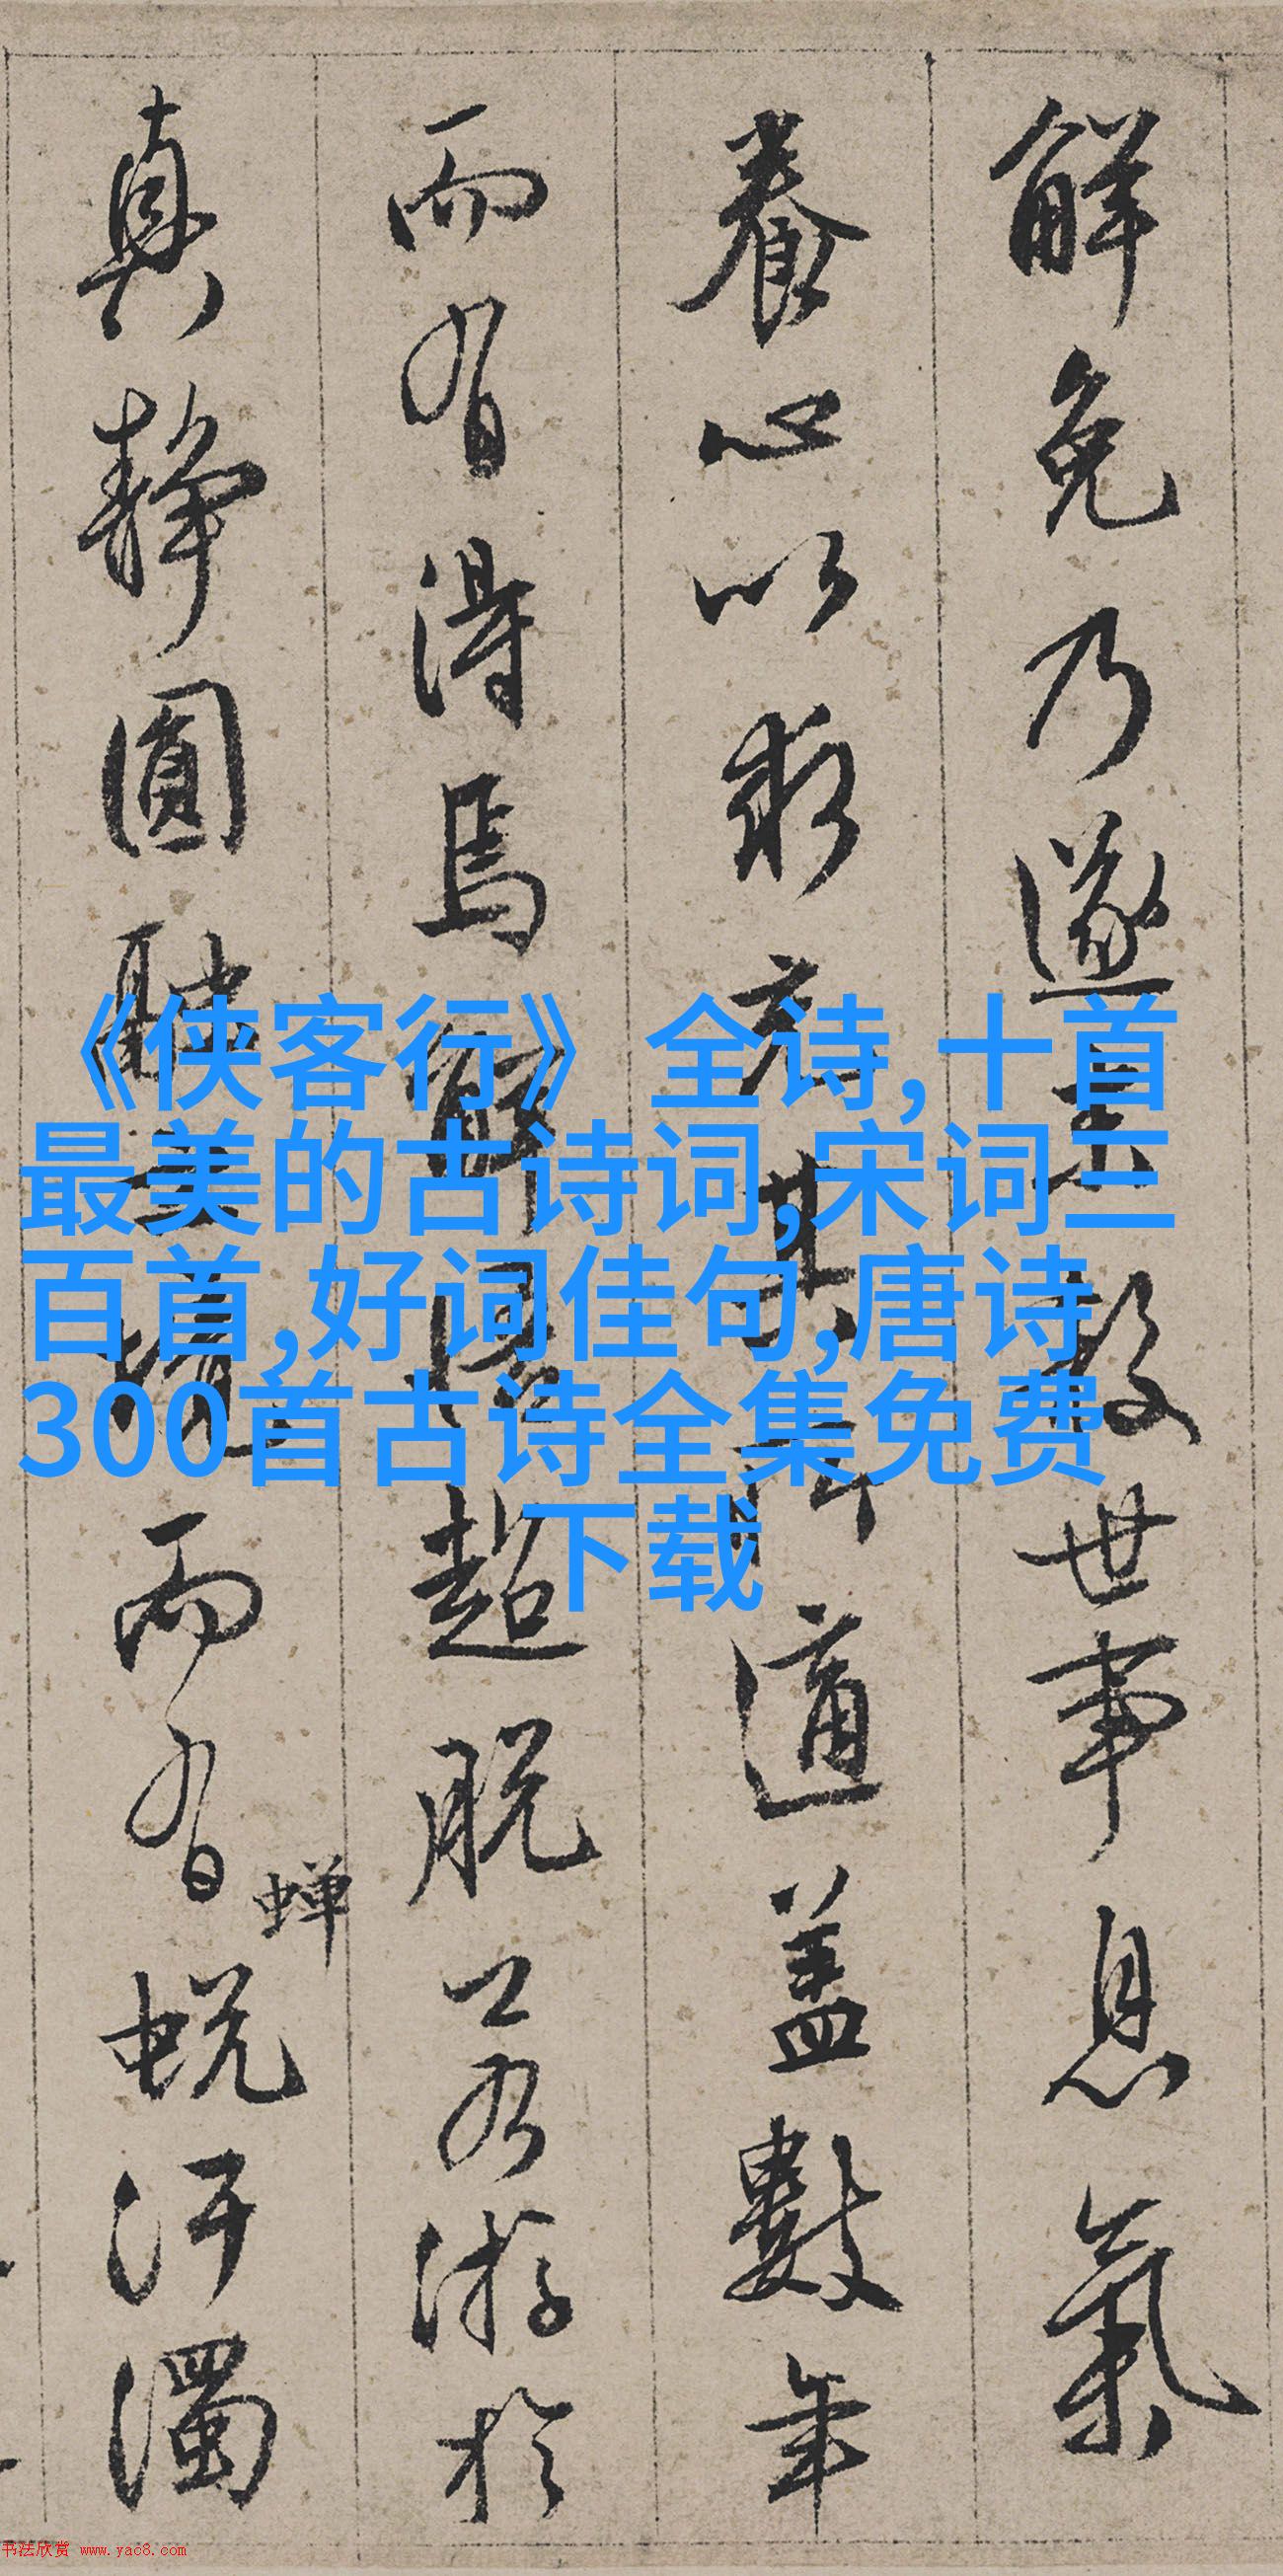 《侠客行》 全诗,十首
最美的古诗词,宋词三
百首,好词佳句,唐诗
300首古诗全集免费
下载
解免乃遂世事息氣
養心以求充其適蓋數年
而有得焉解超脫游於
真靜圓而有蟬蛻汙濁
书法欣赏 www.yac8.com